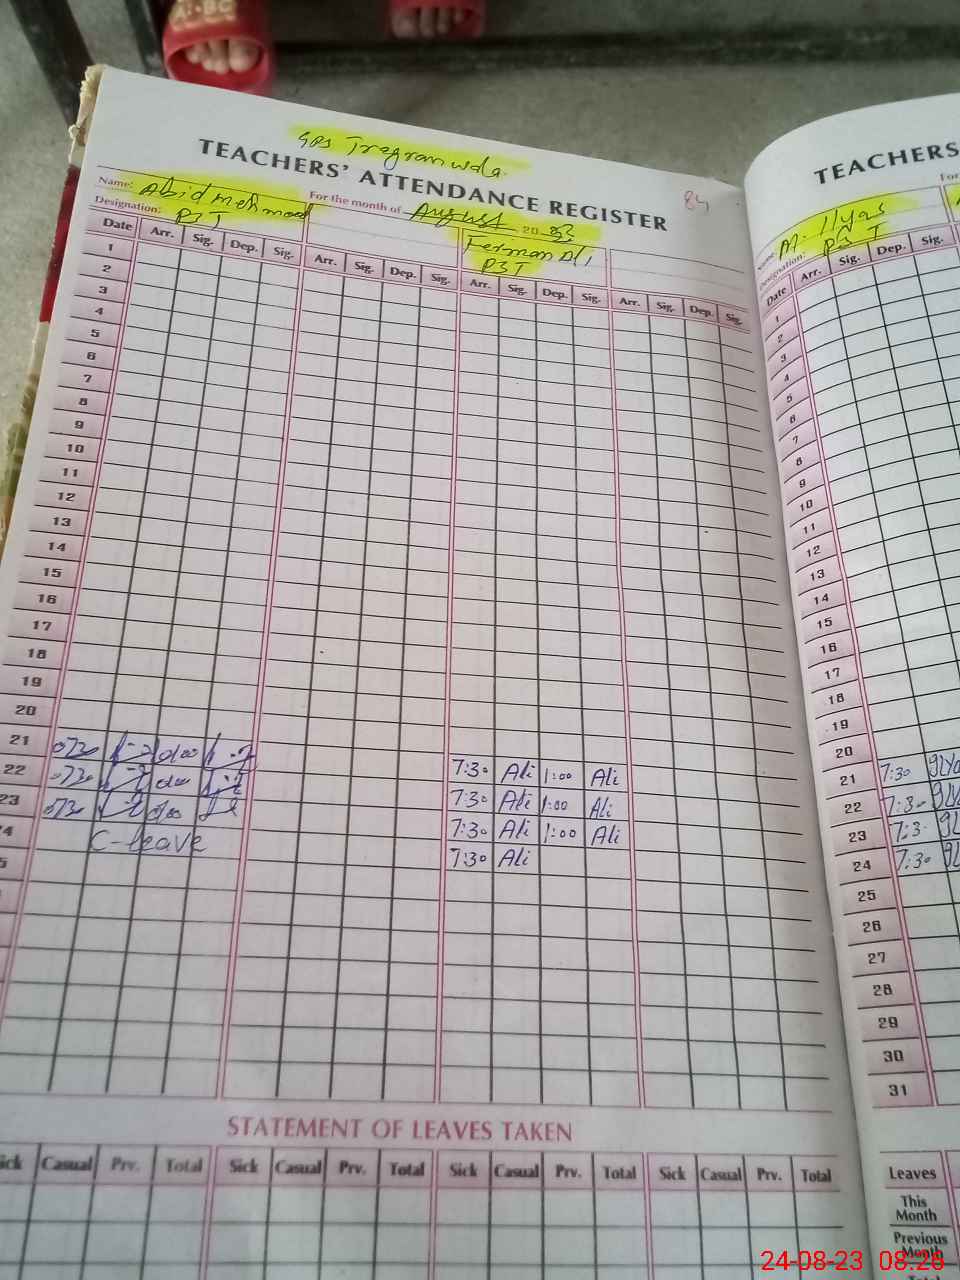 GPS
TEACHERS' ATTENDANCE REGISTER
84
Name: Abid mehmood
For the month of August 20 23
Designation: PST
Ferman Ali
PST
Date Arr. Sig. Dep. Sig. Arr. Sig. Dep. Sig. Arr. Sig. Dep. Sig. Arr. Sig. Dep. Sig.
1
2
3
4
5
6
7
8
9
10
11
12
13
14
15
16
17
18
19
20
21 0730 0100 7:30 Ali 1:00 Ali
22 0730 0100 7:30 Ali 1:00 Ali
23 0730 0100 7:30 Ali 1:00 Ali
4 C-leave 7:30 Ali
5
STATEMENT OF LEAVES TAKEN
ick Casual Prv. Total Sick Casual Prv. Total Sick Casual Prv. Total Sick Casual Prv. Total
TEACHERS
For
Name: M. Ilyas
Designation: PST
Date Arr. Sig. Dep. Sig.
1
2
3
4
5
6
7
8
9
10
11
12
13
14
15
16
17
18
19
20
21 7:30
22 7:30
23 7:3
24 7:30
25
26
27
28
29
30
31
Leaves
This
Month
Previous
Month
24-08-23 08:26